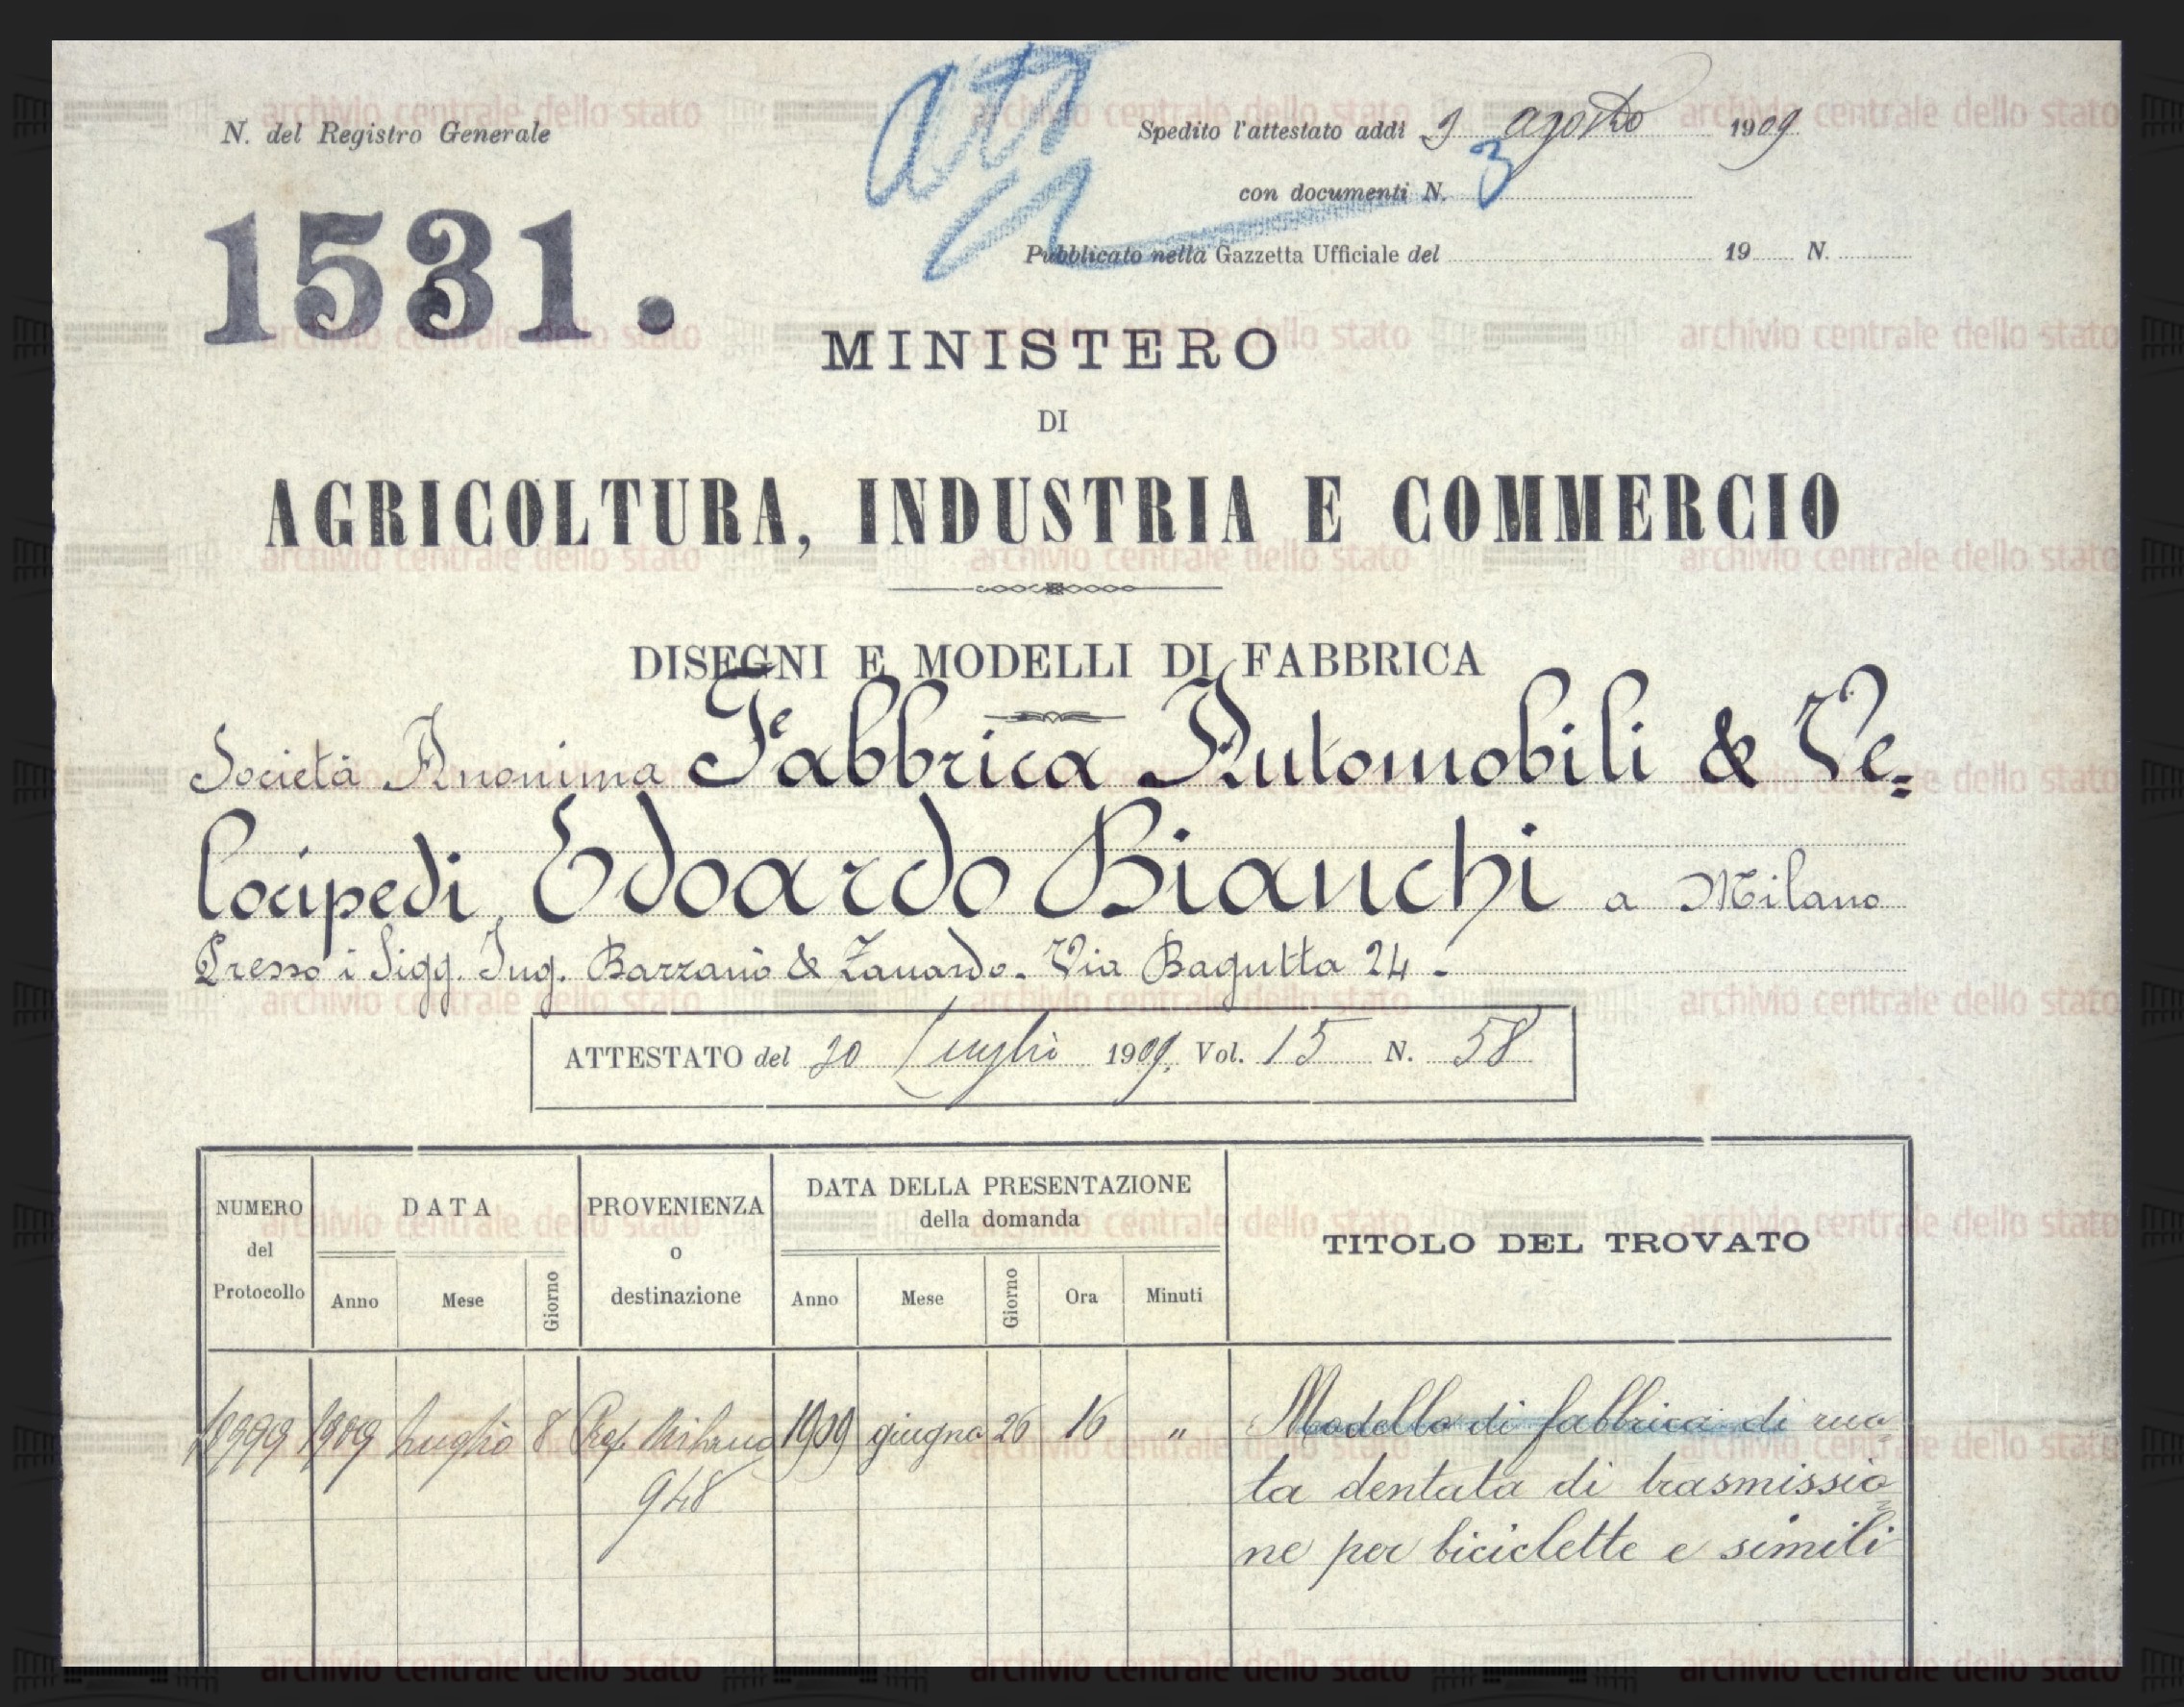 N. del Registro Generale
1531.
Att
Spedito l'attestato addì 9 agosto 1909
con documenti N. 3
Pubblicato nella Gazzetta Ufficiale del 19 N.
MINISTERO
DI
AGRICOLTURA, INDUSTRIA E COMMERCIO
DISEGNI E MODELLI DI FABBRICA
Società Anonima Fabbrica Automobili & Ve=
locipedi, Edoardo Bianchi a Milano
Presso i Sigg. Ing. Barzanò & Zanardo. Via Bagutta 24 -
ATTESTATO del Luglio 1909. Vol. 15 N. 58
NUMERO
del
Protocollo
DATA
Anno Mese Giorno
PROVENIENZA
o
destinazione
DATA DELLA PRESENTAZIONE
della domanda
Anno Mese Giorno Ora Minuti
TITOLO DEL TROVATO
1909 Luglio 8 Pref. Milano 1909 giugno 26 16 " Modello di fabbrica di ruo=
948 ta dentata di trasmissio=
ne per biciclette e simili
archivio centrale dello stato